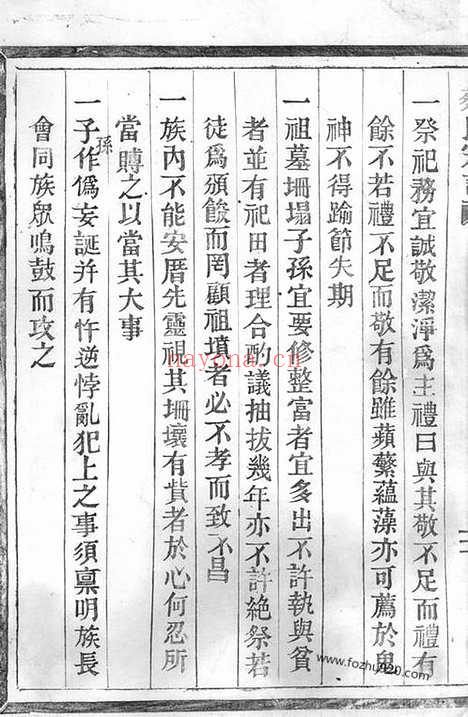 一祭祀務宜誠敬潔淨爲主禮曰與其敬不足而禮有
餘不若禮不足而敬有餘雖蘋蘩蘊藻亦可薦於鬼
神不得踰節失期
一祖墓坍塌子孫宜要修整富者宜多出不許執與貧
者並有祀田者理合酌議抽拔幾年亦不許絶祭若
徒爲頒餕而罔顧祖墳者必不孝而致不昌
一族內不能安厝先靈祖其坍壞有貲者於心何忍所
當賻之以當其大事
一子孫作僞妄誕幷有忤逆悖亂犯上之事須稟明族長
會同族眾鳴鼓而攻之
nayona.cn
www.fozhu920.com